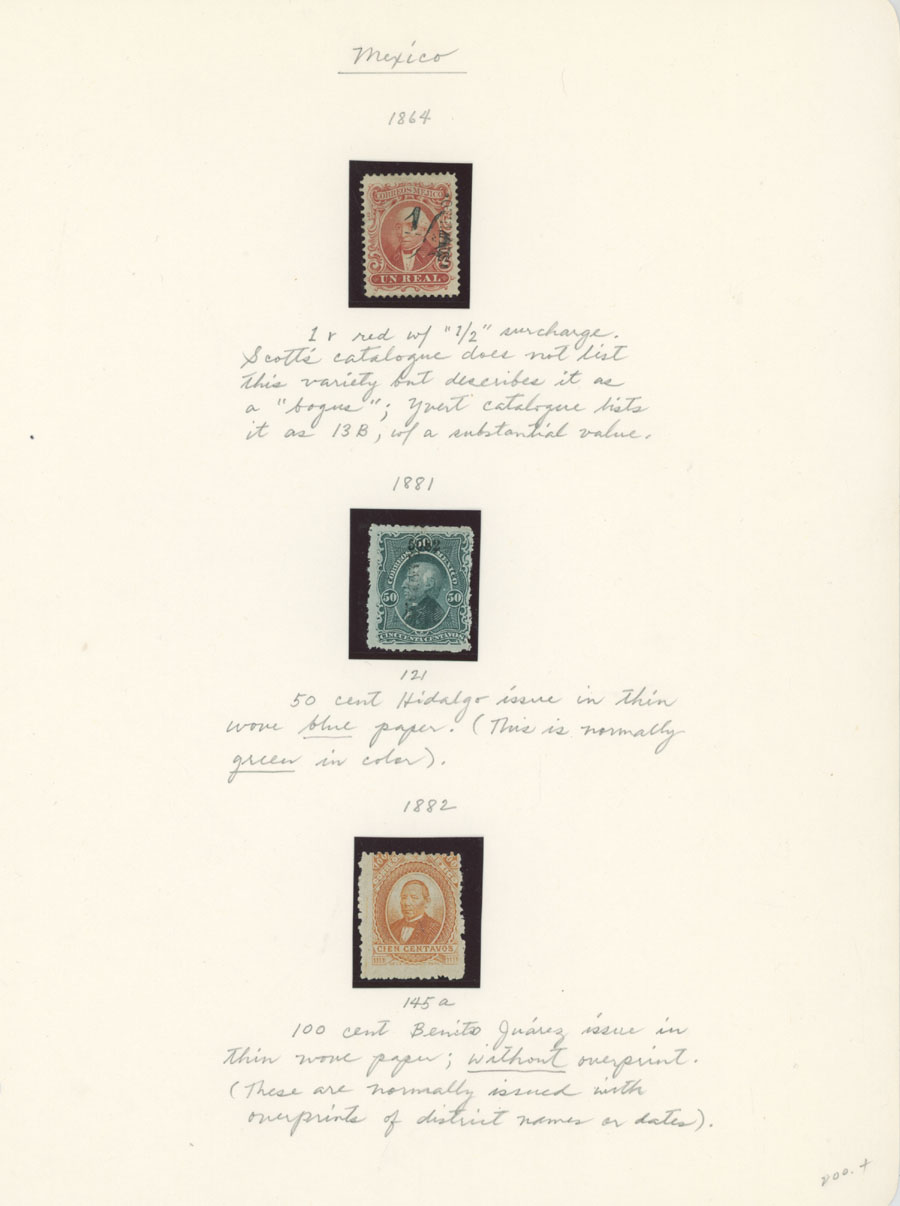 Mexico
1864
CORREOS MEJICO
UN REAL
1 r red w/ "1/2" surcharge.
Scott's catalogue does not list
this variety but describes it as
a "bogus"; Yvert catalogue lists
it as 13B, w/ a substantial value.
1881
50
CORREOS MEXICO
50 50
CINCUENTA CENTAVOS
121
50 cent Hidalgo issue in thin
wove blue paper. (This is normally
green in color).
1882
CIEN CENTAVOS
145a
100 cent Benito Juárez issue in
thin wove paper; without overprint.
(These are normally issued with
overprints of district names or dates).
200.+